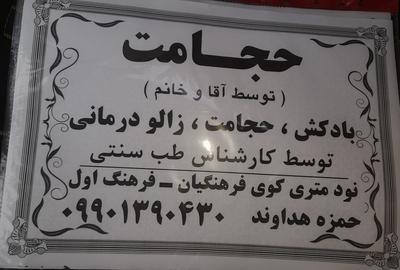 حجامت
( توسط آقا و خانم )
بادکش ، حجامت ، زالو درمانی
توسط کارشناس طب سنتی
نود متری کوی فرهنگیان _ فرهنگ اول
حمزه هداوند ۰۹۹۰۱۳۹۰۴۳۰